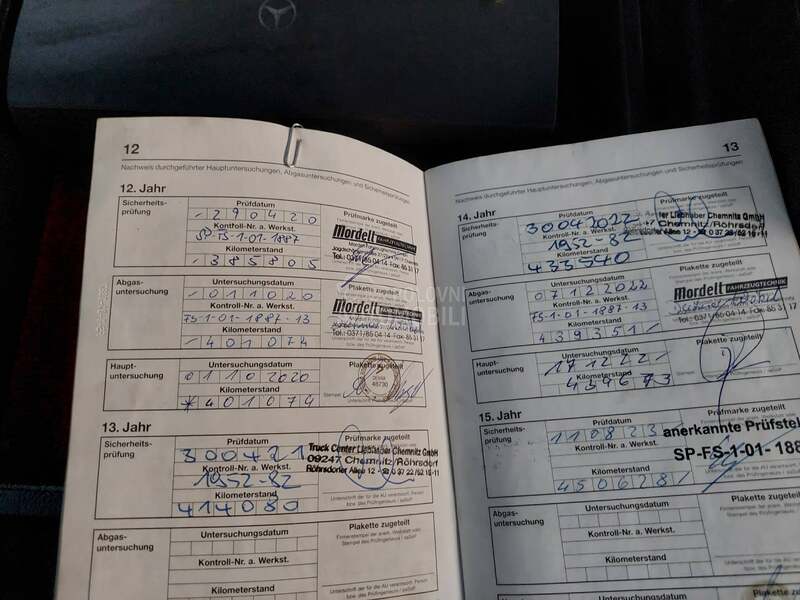 12
Nachweis durchgeführter Hauptuntersuchungen, Abgasuntersuchungen und Sicherheitsprüfungen
12. Jahr
Sicherheits-
prüfung
Prüfdatum
290420
Kontroll-Nr. a. Werkst.
SP-TS-1-01-1887
Kilometerstand
385805
Prüfmarke zugeteilt
Mordelt FAHRZEUGTECHNIK
Tel.: 0371/85 04 14 Fax 85 31 17
Abgas-
untersuchung
Untersuchungsdatum
011020
Kontroll-Nr. a. Werkst.
TS-1-01-1887-13
Kilometerstand
401074
Plakette zugeteilt
Mordelt FAHRZEUGTECHNIK
Tel.: 0371/85 04 14 Fax 85 31 17
Haupt-
untersuchung
Untersuchungsdatum
01102020
Kilometerstand
*401074
Plakette zugeteilt
Stempel
13. Jahr
Sicherheits-
prüfung
Prüfdatum
300421
Kontroll-Nr. a. Werkst.
1952-82
Kilometerstand
414080
Prüfmarke zugeteilt
Truck Center Liebhaber Chemnitz GmbH
09247 Chemnitz/Röhrsdorf
Röhrsdorfer Allee 12
Unterschrift der für die AU verantwortl. Person
bzw. des Prüfingenieurs / aaSoP
Abgas-
untersuchung
Untersuchungsdatum
Kontroll-Nr. a. Werkst.
Kilometerstand
Plakette zugeteilt
Unterschrift der für die AU verantwortl. Person
bzw. des Prüfingenieurs / aaSoP
13
Nachweis durchgeführter Hauptuntersuchungen, Abgasuntersuchungen und Sicherheitsprüfungen
14. Jahr
Sicherheits-
prüfung
Prüfdatum
30042022
Kontroll-Nr. a. Werkst.
1952-82
Kilometerstand
433540
Prüfmarke zugeteilt
ter Liebhaber Chemnitz GmbH
Chemnitz/Röhrsdorf
Abgas-
untersuchung
Untersuchungsdatum
07122022
Kontroll-Nr. a. Werkst.
TS-1-01-1887-13
Kilometerstand
439351
Plakette zugeteilt
Mordelt FAHRZEUGTECHNIK
Tel.: 0371/85 04 14 Fax 85 31 17
Haupt-
untersuchung
Untersuchungsdatum
171222
Kilometerstand
439673
Plakette zugeteilt
Stempel
15. Jahr
Sicherheits-
prüfung
Prüfdatum
110823
Kontroll-Nr. a. Werkst.
Kilometerstand
450628
Prüfmarke zugeteilt
anerkannte Prüfstel
SP-FS-1-01-188
Abgas-
untersuchung
Untersuchungsdatum
Kontroll-Nr. a. Werkst.
Kilometerstand
Plakette zugeteilt
Untersuchungsdatum
Plakette zugeteilt